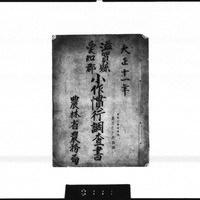 大正十一年
滋賀縣
愛知郡
小作慣行調査書
農林省農務局